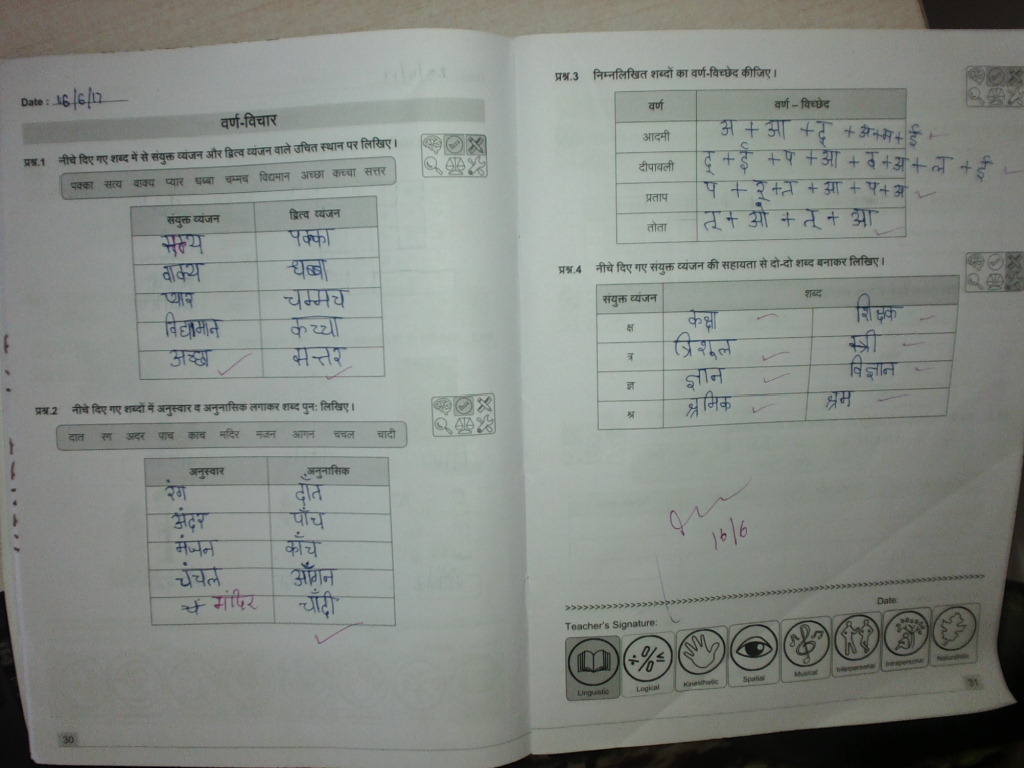 Date : 16/6/17
वर्ण-विचार
प्रश्न.1 नीचे दिए गए शब्द में से संयुक्त व्यंजन और द्वित्व व्यंजन वाले उचित स्थान पर लिखिए।
पक्का सत्य वाक्य प्यार धब्बा चम्मच विद्यमान अच्छा कच्चा सत्तर
संयुक्त व्यंजन द्वित्व व्यंजन
सत्य पक्का
वाक्य धब्बा
प्यार चम्मच
विद्यामान कच्चा
अच्छा सत्तर
प्रश्न.2 नीचे दिए गए शब्दों में अनुस्वार व अनुनासिक लगाकर शब्द पुनः लिखिए।
दात रग अदर पाच काच मदिर मजन आगन चचल चादी
अनुस्वार अनुनासिक
रंग दाँत
अंदर पाँच
मंजन काँच
चंचल आँगन
मंदिर चाँदी
30
प्रश्न.3 निम्नलिखित शब्दों का वर्ण-विच्छेद कीजिए।
वर्ण वर्ण – विच्छेद
आदमी अ + आ + द् + अ+म+ ई
दीपावली द् + ई + प + आ + व + अ + ल + ई
प्रताप प + र्+त + आ + प + अ
तोता त् + ओ + त् + आ
प्रश्न.4 नीचे दिए गए संयुक्त व्यंजन की सहायता से दो-दो शब्द बनाकर लिखिए।
संयुक्त व्यंजन शब्द
क्ष कक्षा शिक्षक
त्र त्रिशूल स्त्री
ज्ञ ज्ञान विज्ञान
श्र श्रमिक श्रम
16/6
Date:
Teacher's Signature:
Linguistic Logical Kinesthetic Spatial Musical Interpersonal Intrapersonal Naturalistic
31